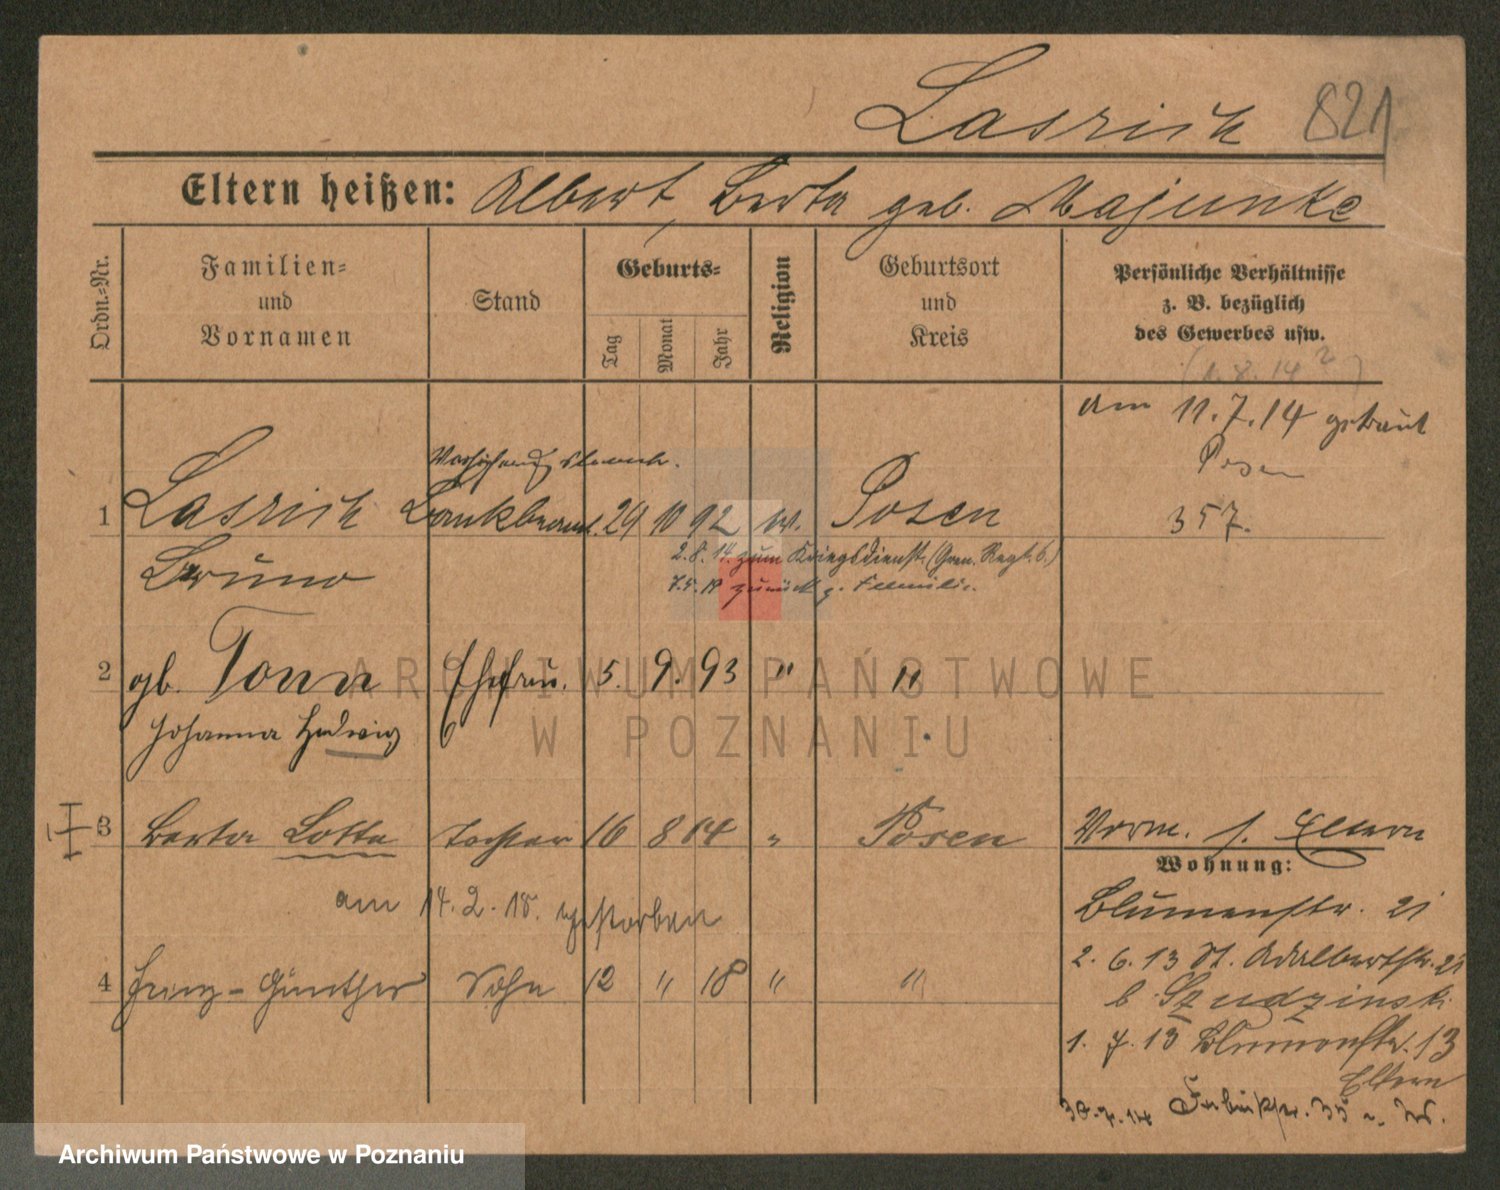 Lasrich 821
Eltern heißen: Albert, Berta geb. Majunke
Ordn.-Nr.
Familien-
und
Vornamen
Stand
Geburts-
Tag
Monat
Jahr
Religion
Geburtsort
und
Kreis
Persönliche Verhältnisse
z. B. bezüglich
des Gewerbes usw.
(1. 8. 14 ?)
am 11.7.14 getraut
Posen
357.
1 Lasrich Bankbeamt. 29 10 92 Posen
Bruno
2.8.14. zum Kriegsdienst (Gren. Regt. 6.)
zurück z. Familie.
2 gb. Tonn Ehefrau. 5. 9. 93 " "
Johanna Hedwig
3 Berta Lotte Tochter 16 8 14 " Posen
Vorm. s. Eltern
am 14. 2. 15. gestorben
4 Heinz-Günther Sohn 12 " 18 " "
Wohnung:
Blumenstr. 21
2. 6. 13 St. Adalbertstr. 21
b. Szudzinski
1. 7. 13 Blumenstr. 13
Eltern
30.7.14
ARCHIWUM PAŃSTWOWE
W POZNANIU
Archiwum Państwowe w Poznaniu